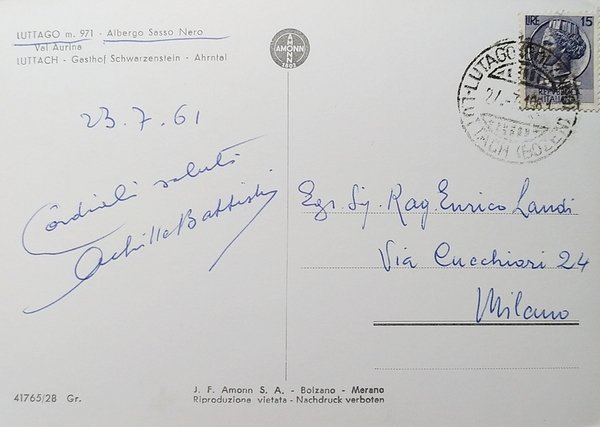 LUTTAGO m. 971 - Albergo Sasso Nero
Val Aurina
LUTTACH - Gasthof Schwarzenstein - Ahrntal
AMONN
1802
LIRE 15
LUTAGO (BOLZANO)
LUTTACH (BOZEN)
23.7.61
Cordiali saluti
Achille Battisti
Egr. Sig. Rag. Enrico Landi
Via Cucchiari 24
Milano
J. F. Amonn S. A. - Bolzano - Merano
Riproduzione vietata - Nachdruck verboten
41765/28 Gr.